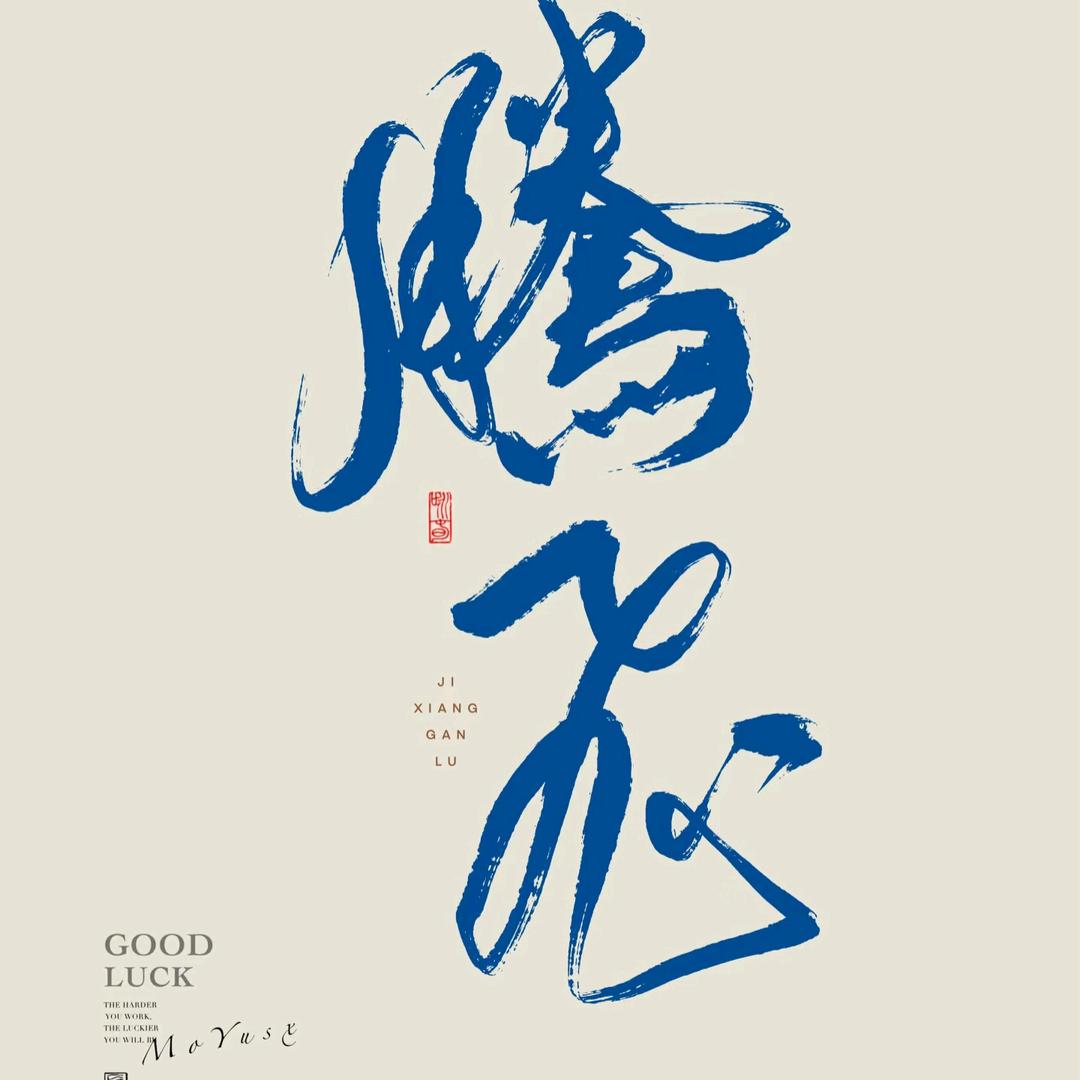 腾
飞
JI
XIANG
GAN
LU
GOOD
LUCK
THE HARDER
YOU WORK,
THE LUCKIER
YOU WILL BE
MoYusx